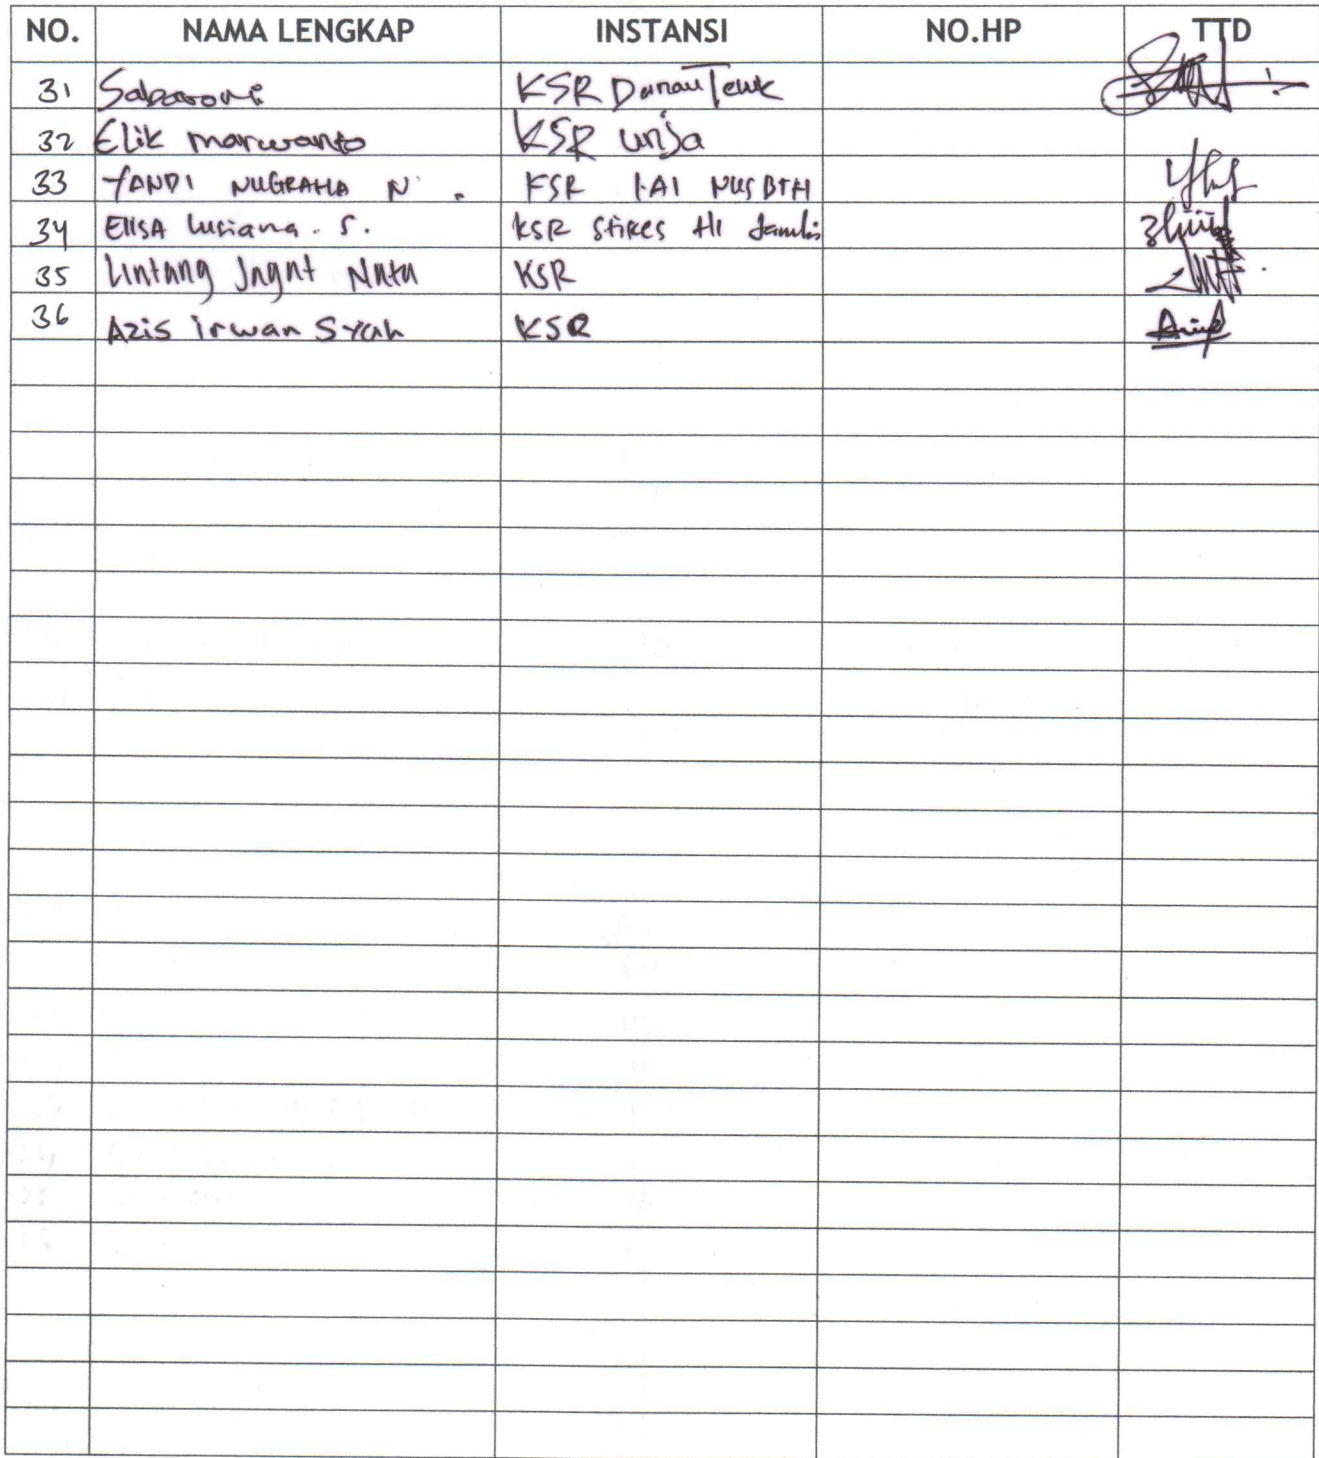 NO. NAMA LENGKAP INSTANSI NO.HP TTD
31 Sabaroni KSR Danau Teluk
32 Elik marwanto KSR unja
33 YANDI NUGRAHA N. KSR IAI NUSBTH
34 ElisA lusiana. S. KSR Stikes HI Jambi
35 Lintang Jagat Nata KSR
36 Azis irwan Syah KSR